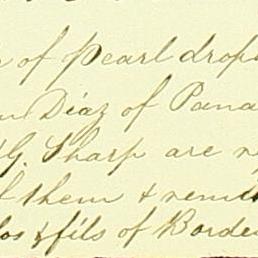 of pearl drops
Diaz of Pana
G. Sharp are
them & remit
los & fils of Borde